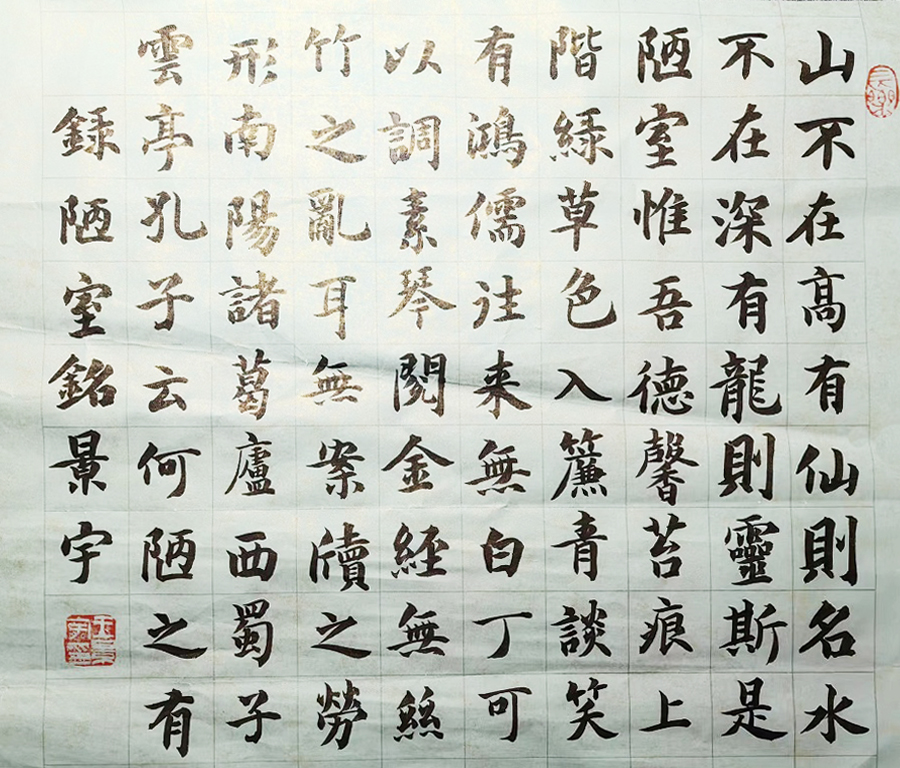 山不在高有仙則名水
不在深有龍則靈斯是
陋室惟吾德馨苔痕上
階緑草色入簾青談笑
有鴻儒往来無白丁可
以調素琴閱金經無絲
竹之亂耳無案牘之勞
形南陽諸葛廬西蜀子
雲亭孔子云何陋之有
録陋室銘景宇